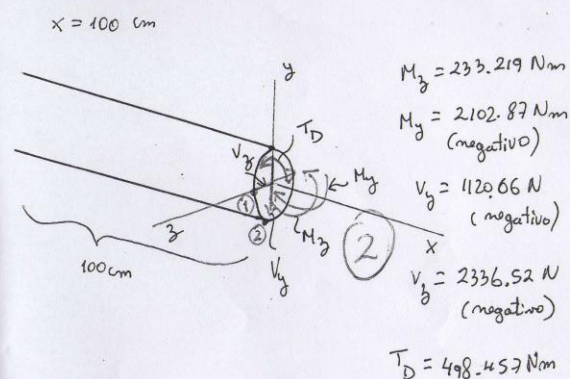 x = 100 cm
y
T_D
V_z
M_y
①
②
z
V_y
M_z
x
2
100 cm
M_z = 233.219 Nm
M_y = 2102.87 Nm
(negativo)
V_y = 1120.66 N
(negativo)
V_z = 2336.52 N
(negativo)
T_D = 498.457 Nm